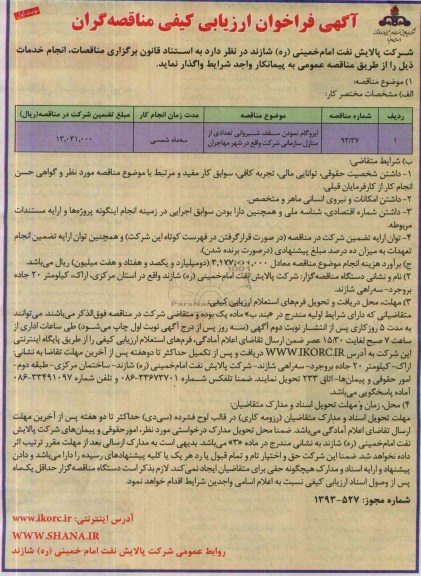 نوبت اول
آگهی فراخوان ارزیابی کیفی مناقصه‌گران
شرکت پالایش نفت امام‌خمینی (ره) شازند در نظر دارد به استناد قانون برگزاری مناقصات، انجام خدمات
ذیل را از طریق مناقصه عمومی به پیمانکار واجد شرایط واگذار نماید.
۱) موضوع مناقصه:
الف) مشخصات مختصر کار:
ردیف شماره مناقصه موضوع مناقصه مدت زمان انجام کار مبلغ تضمین شرکت در مناقصه(ریال)
۱ ۹۳/۳۷ ایزوگام نمودن سقف شیروانی تعدادی از سه‌ماه شمسی ۱۳,۰۳۱,۰۰۰
منازل سازمانی شرکت واقع در شهر مهاجران
ب) شرایط متقاضی:
۱- داشتن شخصیت حقوقی، توانایی مالی، تجربه کافی، سوابق کار مفید و مرتبط با موضوع مناقصه مورد نظر و گواهی حسن
انجام کار از کارفرمایان قبلی.
۲- داشتن امکانات و نیروی انسانی ماهر و متخصص.
۳- داشتن شماره اقتصادی، شناسه ملی و همچنین دارا بودن سوابق اجرایی در زمینه انجام اینگونه پروژه‌ها و ارایه مستندات
مربوطه.
۴- توان ارایه تضمین شرکت در مناقصه (در صورت قرارگرفتن در فهرست کوتاه این شرکت) و همچنین توان ارایه تضمین انجام
تعهدات به میزان ده درصد مبلغ پیشنهادی (درصورت برنده شدن).
ج) برآورد هزینه انجام موضوع مناقصه معادل (دومیلیارد و یکصد و هفتاد و هفت میلیون) ریال می‌باشد.
۲) نام و نشانی دستگاه مناقصه‌گزار: شرکت پالایش نفت امام‌خمینی (ره) شازند واقع در استان مرکزی، اراک، کیلومتر ۲۰ جاده
بروجرد- سه‌راهی شازند.
۳) مهلت، محل دریافت و تحویل فرم‌های استعلام ارزیابی کیفی:
متقاضیانی که دارای شرایط اولیه مندرج در «بند ب» ماده یک بوده و متقاضی شرکت در مناقصه فوق‌الذکر می‌باشند، می‌توانند
به مدت ۵ روزکاری پس از انتشار نوبت دوم آگهی (سه روز پس از درج آگهی نوبت اول چاپ می‌شود) طی ساعات اداری از
ساعت ۷ صبح لغایت ۱۵:۳۰ عصر ضمن ارسال تقاضای اعلام آمادگی، فرم‌های استعلام ارزیابی کیفی را از طریق پایگاه اینترنتی
این شرکت به آدرس WWW.IKORC.IR دریافت و پس از تکمیل حداکثر تا دوهفته پس از آخرین مهلت تقاضا به نشانی:
اراک- کیلومتر ۲۰ جاده بروجرد- سه‌راهی شازند- شرکت پالایش نفت امام‌خمینی (ره) شازند- ساختمان مرکزی- طبقه دوم-
امور حقوقی و پیمان‌ها- اتاق ۲۳۳ تحویل نمایند. ضمنا تلفکس شماره ۳۳۶۷۳۷۰۱-۰۸۶ و تلفن شماره ۳۳۴۹۱۰۹۷-۰۸۶
آماده پاسخگویی می‌باشد.
۴) محل، زمان و مهلت تحویل اسناد و مدارک متقاضیان:
مهلت تحویل اسناد و مدارک متقاضیان (رزومه کاری) در قالب لوح فشرده (سی‌دی) حداکثر تا دو هفته پس از آخرین مهلت
ارسال تقاضای اعلام آمادگی می‌باشد. ضمنا محل تحویل مدارک درخواستی مورد نظر، امورحقوقی و پیمان‌های شرکت پالایش
نفت امام‌خمینی (ره) شازند به نشانی مندرج در ماده «۳» می‌باشد. بدیهی است به مدارک ارسالی بعد از مهلت مقرر ترتیب اثر
داده نخواهد شد. ضمنا این شرکت حق و اختیار تام و تمام قبول یا رد هر یک یا کلیه پیشنهادهای رسیده را دارا می‌باشد و دادن
پیشنهاد و ارایه اسناد و مدارک هیچگونه حقی برای متقاضیان ایجاد نمی‌کند. لازم بذکر است دستگاه مناقصه‌گزار حداقل یک‌ماه
پس از وصول اسناد ارزیابی کیفی نسبت به اعلام اسامی واجدین شرایط اقدام خواهد نمود.
شماره مجوز: ۵۲۷-۱۳۹۳
آدرس اینترنتی: www.ikorc.ir
WWW.SHANA.IR
روابط عمومی شرکت پالایش نفت امام خمینی (ره) شازند